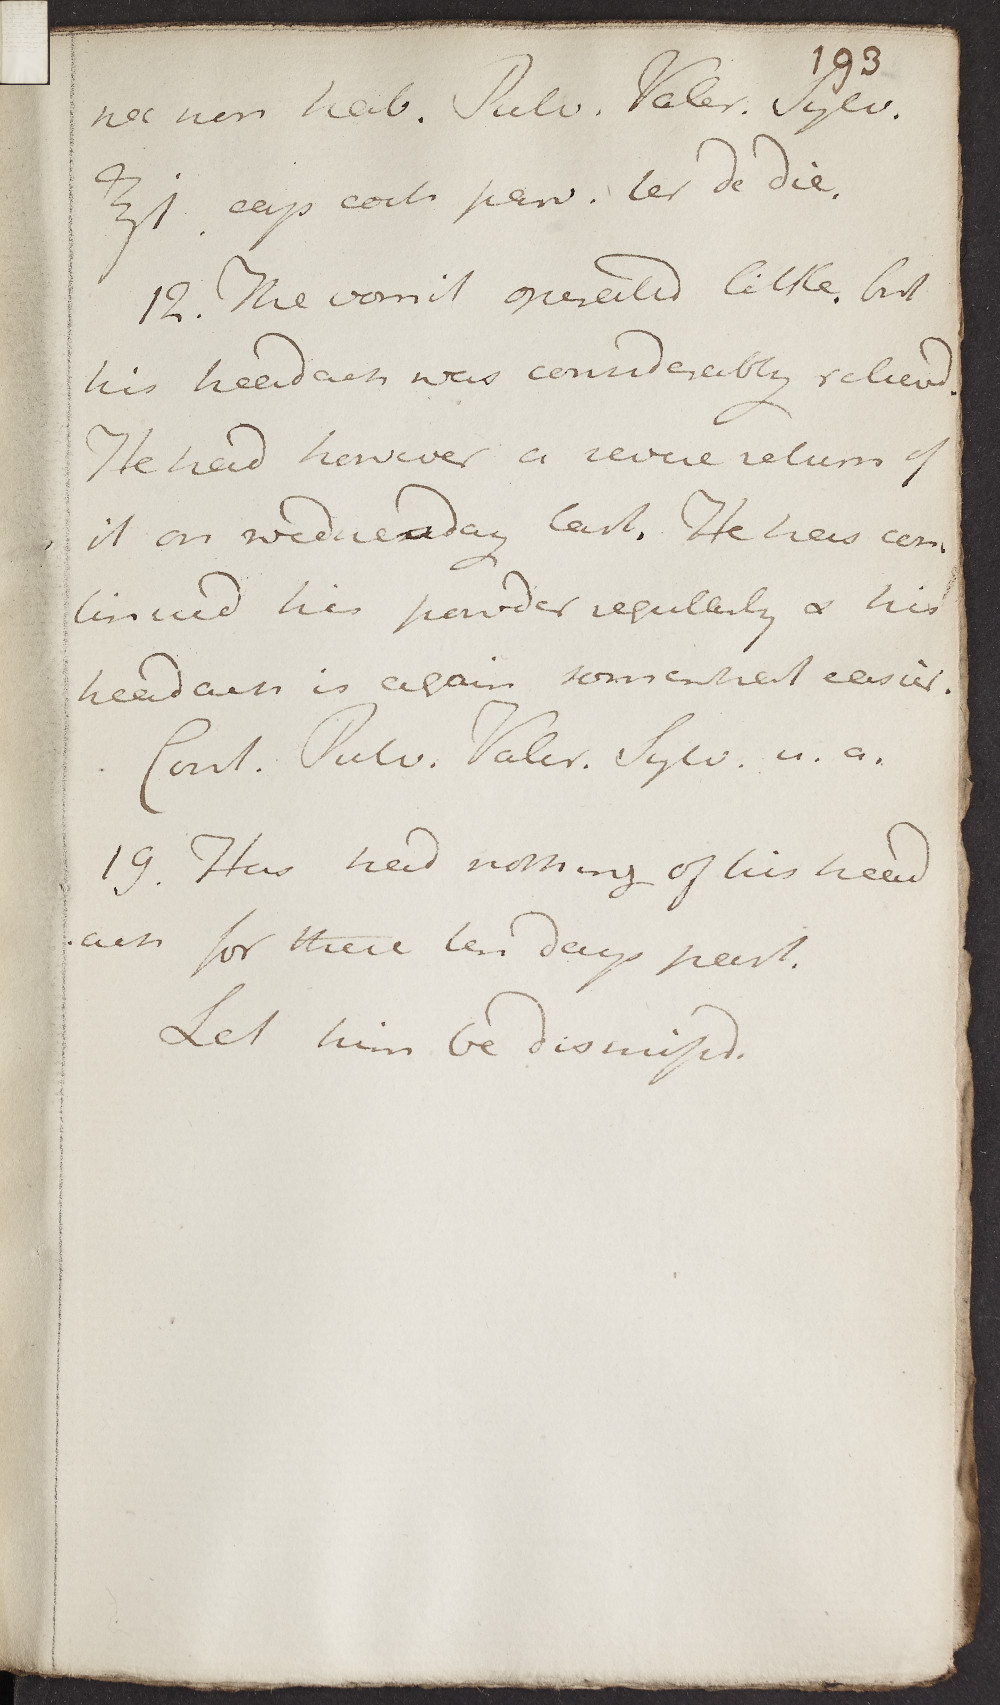 193
nec non hab. Pulv. Valer. Sylv.
ʒi. cap coch parv. ter de die.
12. The vomit operated little, but
his headach was considerably relievd.
He had however a severe return of
it on wednesday last. He has con-
tinued his powder regullarly & his
headach is again somewhat easier.
Cont. Pulv. Valer. Sylv. u. a.
19. Has had nothing of his head
-ach for these ten days past.
Let him be dismissd.